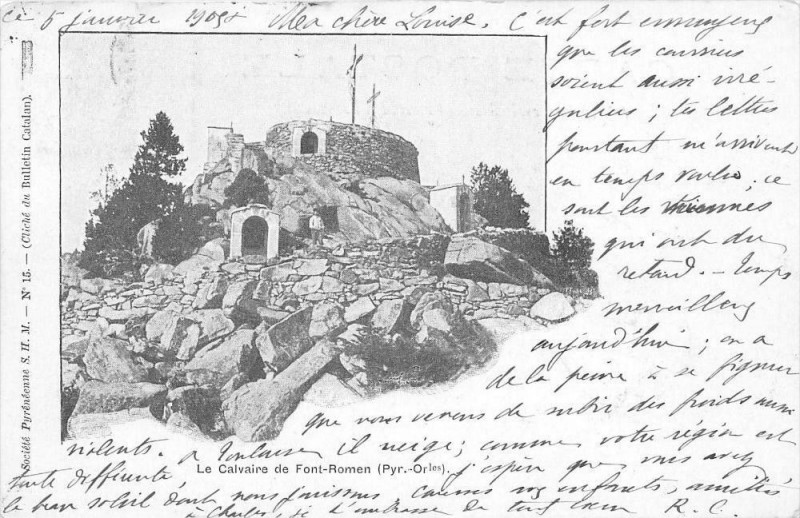 Ce 5 janvier 1905. Ma chère Louise. C'est fort ennuyeux
que les courriers
soient aussi irré-
guliers ; tes lettres
pourtant m'arrivent
en temps voulu ; ce
sont les miennes
qui ont du
retard. — Temps
merveilleux
aujourd'hui ; on a
de la peine à se figurer
que nous venons de subir des froids aussi
violents. A Toulouse il neige ; comme votre région est
toute différente, j'espère que vous avez
le bon soleil dont nous jouissons. Caresses aux enfants, amitiés
à Charles, je t'embrasse de tout cœur R. C.
Le Calvaire de Font-Romen (Pyr.-Orles).
Société Pyrénéenne S. H. M. — N° 15. — (Cliché du Bulletin Catalan).